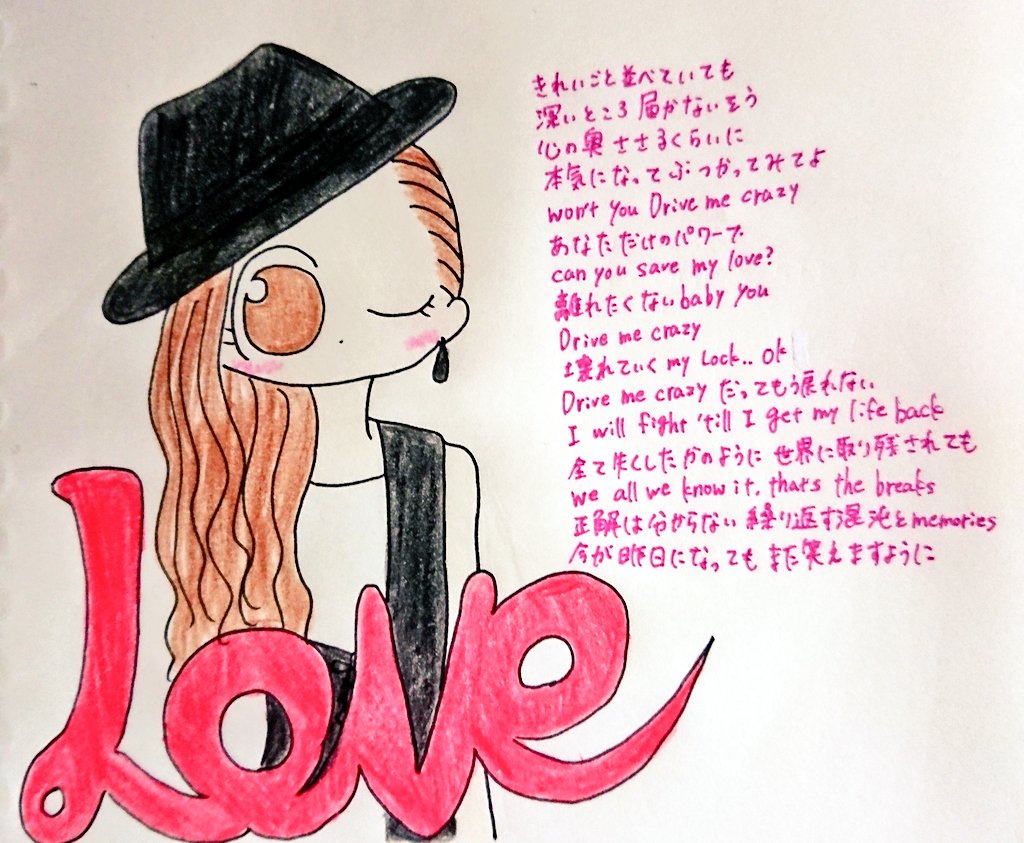 きれいごと並べていても
深いところ届かないそう
心の奥ささるくらいに
本気になってぶつかってみてよ
won't you Drive me crazy
あなただけのパワーで
can you save my love?
離れたくないbaby you
Drive me crazy
壊れていく my Lock.. ok
Drive me crazy だってもう戻れない
I will fight 'till I get my life back
全て失くしたかのように 世界に取り残されても
we all we know it. that's the breaks
正解は分からない 繰り返す混沌とmemories
今が昨日になっても まだ笑えますように
Love